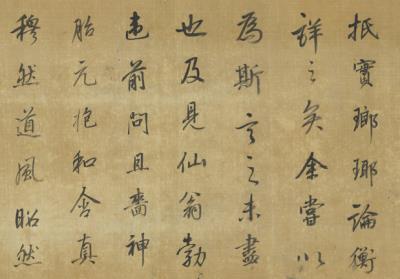 抵寶瑯瑯論衡
詳之矣余嘗以
為斯言之未盡
也及見仙翁勃
走前問且嗇神
胎元抱和含真
穆然道風昭然